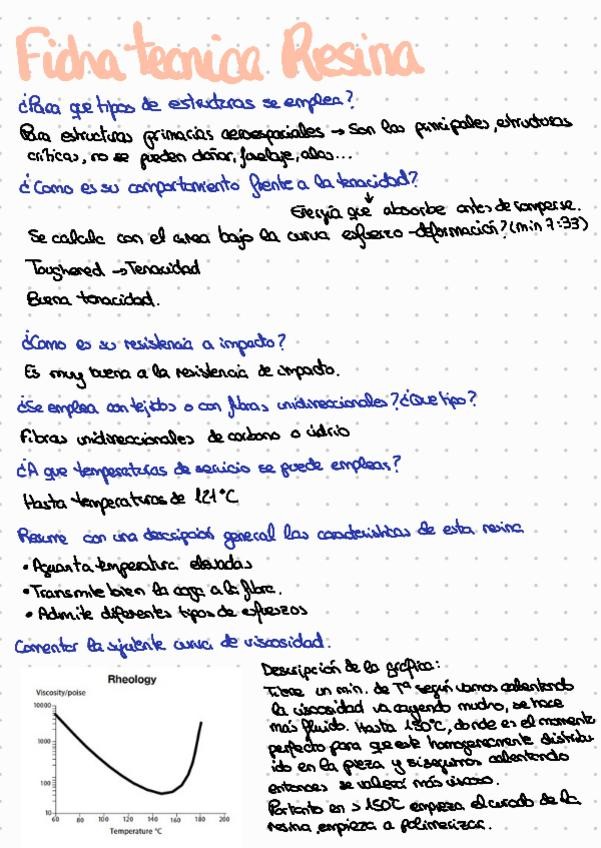 Ficha tecnica Resina
¿Para que tipos de estructuras se emplea?
Para estructuras primarias aeroespaciales → Son las principales, estructuras
críticas, no se pueden dañar, fuselaje, alas...
¿Como es su comportamiento frente a la tenacidad?
Energía que absorbe antes de romperse.
Se calcula con el area bajo la curva esfuerzo-deformación? (min 7:33)
Toughened → Tenacidad
Buena tenacidad.
¿Como es su resistencia a impacto?
Es muy buena a la resistencia de impacto.
¿Se emplea con tejidos o con fibras unidireccionales? ¿Que tipo?
Fibras unidireccionales de carbono o vidrio
¿A que temperaturas de servicio se puede emplear?
Hasta temperaturas de 121°C
Resume con una descripción general las características de esta resina
• Aguanta temperatura elevadas
• Transmite bien la carga a la fibra.
• Admite diferentes tipos de esfuerzos
Comentar la siguiente curva de viscosidad.
Rheology
Viscosity/poise
10000
1000
100
10
60 80 100 120 140 160 180 200
Temperature °C
Descripción de la gráfica:
Tiene un min. de Tª según vamos calentando
la viscosidad va cayendo mucho, se hace
más fluido. Hasta 150°C, donde es el momento
perfecto para que esté homogeneamente distribu-
ido en la pieza y si seguimos calentando
entonces se vuelve más viscoso.
Por tanto en > 150°C empieza el curado de la
resina, empieza a polimerizar.